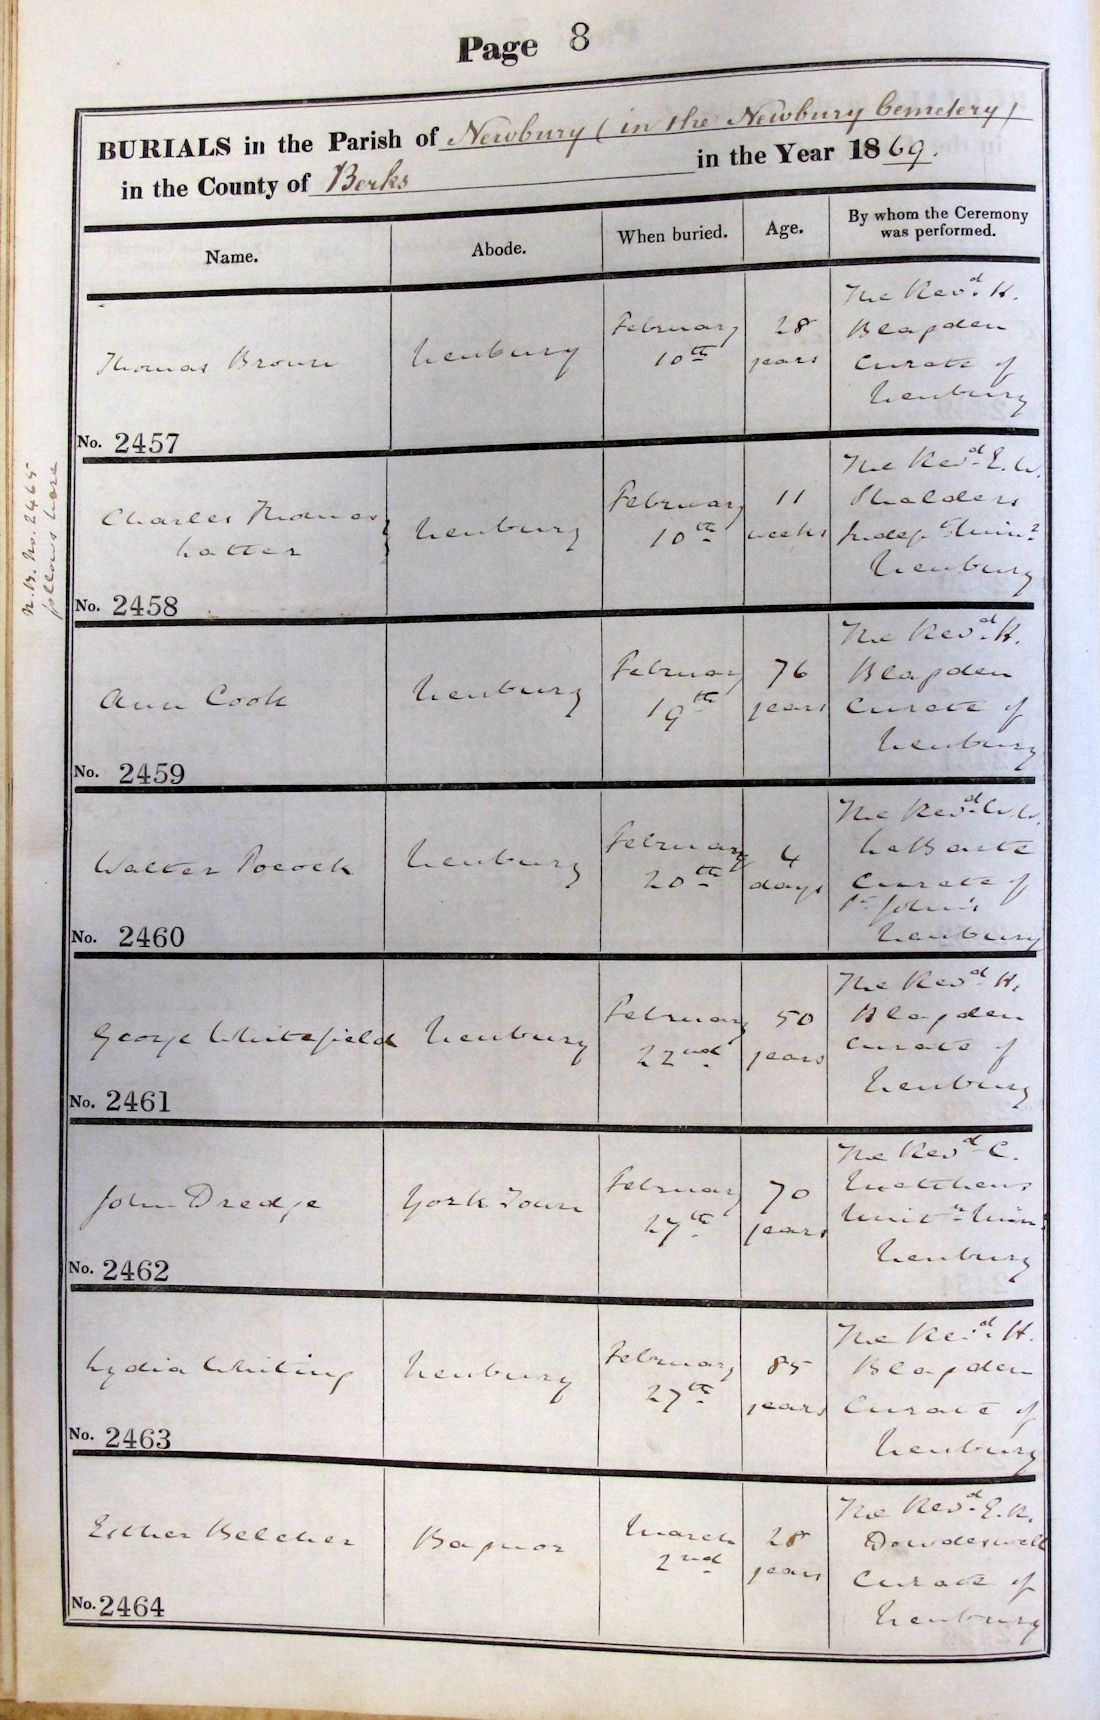 Page 8
BURIALS in the Parish of Newbury (in the Newbury Cemetery)
in the County of Berks in the Year 1869.
Name. Abode. When buried. Age. By whom the Ceremony was performed.
Thomas Brown Newbury February 10th 28 years The Revd. H. Blagden Curate of Newbury
No. 2457
N.B. No. 2465
follows here
Charles Thomas } Newbury February 10th 11 weeks The Revd. E. W. Shalders Indept. Minr. Newbury
No. 2458
Ann Cook Newbury February 19th 76 years The Revd. H. Blagden Curate of Newbury
No. 2459
Walter Pocock Newbury February 20th 4 days The Revd. W. W. Curate of St. John's Newbury
No. 2460
George Whitefield Newbury February 22nd 50 years The Revd. H. Blagden Curate of Newbury
No. 2461
John Dredge York Town February 27th 70 years The Revd. C. Unitn. Minr. Newbury
No. 2462
Lydia Whiting Newbury February 27th 85 years The Revd. H. Blagden Curate of Newbury
No. 2463
Esther Belcher Bagnor March 2nd 28 years The Revd. E. R. Dowdeswell Curate of Newbury
No. 2464